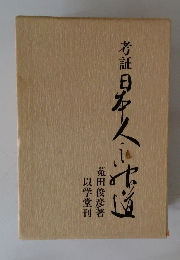 考証
日本人の神道
苑田俊彦著
以学堂刊